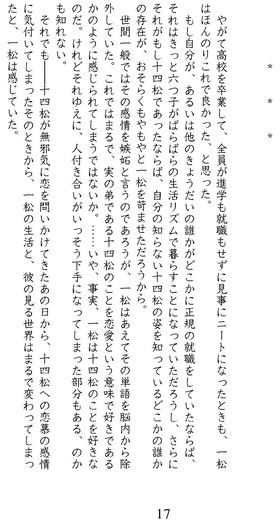 ＊　＊　＊
やがて高校を卒業して、全員が進学も就職もせずに見事にニートになったときも、一松
はほんのりこれで良かった、と思った。
もし自分が、あるいは他のきょうだいの誰かがどこかに正規の就職をしていたならば、
それはきっと六つ子がばらばらの生活リズムで暮らすことになっていただろうし、さらに
それがもし十四松であったならば、自分の知らない十四松の姿を知っているどこかの誰か
の存在が、おそらくもやもやと一松を苛ませただろうから。
世間一般ではその感情を嫉妬と言うのであろうが、一松はあえてその単語を脳内から除
外していた。これではまるで、実の弟である十四松のことを恋愛という意味で好きである
かのように感じられてしまうではないか。……いや、事実、一松は十四松のことを好きな
のだけれど。けれどそれゆえに、人付き合いがいっそう下手になってしまった部分もある、のか
も知れない。
それでも――十四松が無邪気に恋を問いかけてきたあの日から、十四松への恋慕の感情
に気付いてしまったそのときから、一松の生活と、彼の見る世界はまるで変わってしまっ
たと、一松は感じていた。
17